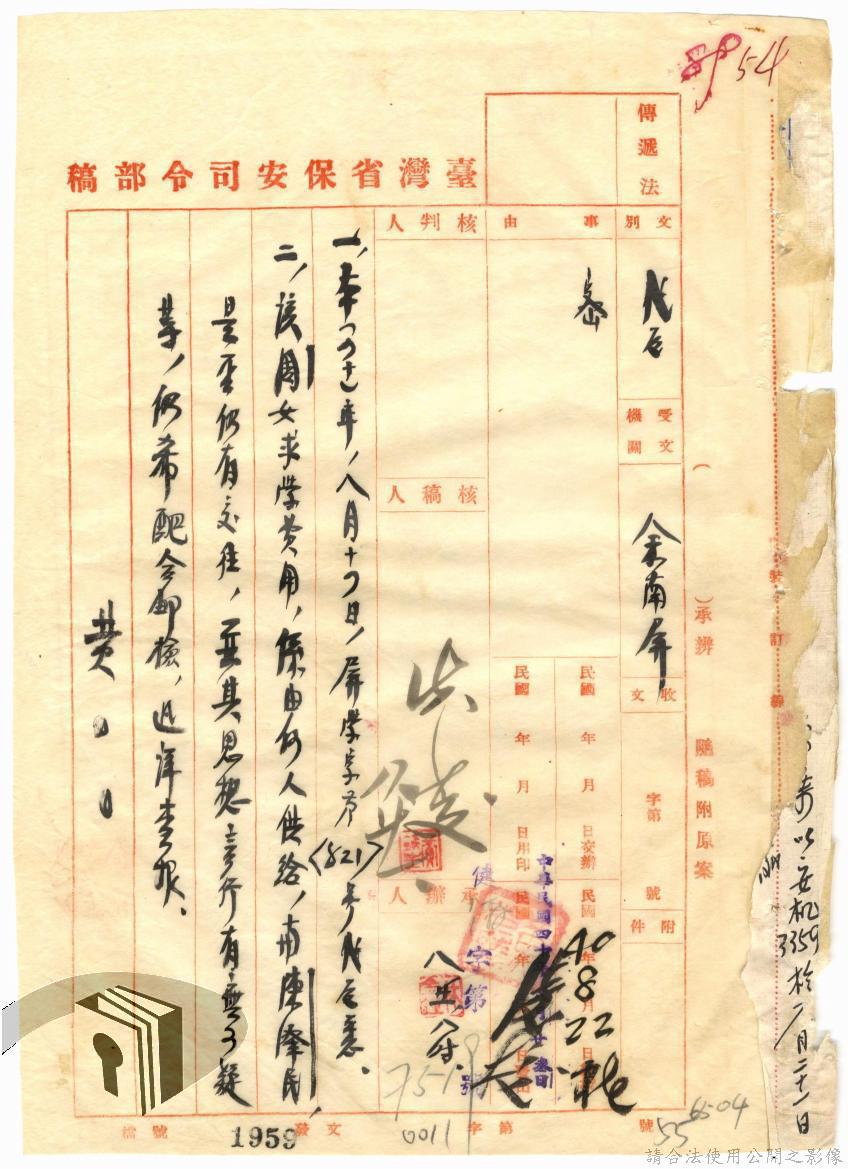 54
傳遞法
臺灣省保安司令部稿
文別
代電
事由
核判人
受文機關
余南屏
核稿人
收文 字第 號
附件
民國 年 月 日交辦
民國 年 月 日用印
承辦人
(
)承辦 隨稿附原案
裝訂線
一、本(四十)年八月十 日屏學字第
(821)号代電悉。
二、該周女求學費用,係由何人供給,南陳澤民,
是否仍有交往,其思想言行有無可疑
等,仍希配合郵檢,迅詳查報。
黄
中華民國四十年
健字第 號
7519
0011
40
8
22
檔號
1959
發文 字第 號
55
6504
以安机3359於八月二十一日
請合法使用公開之影像